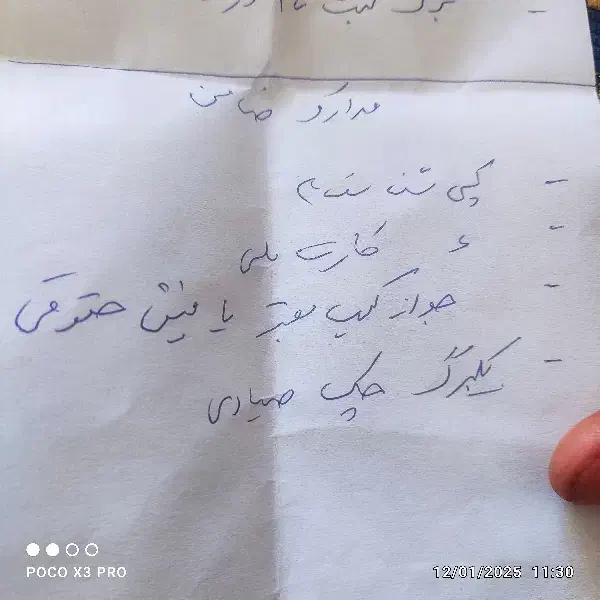 مدارک ضامن
- کپی شناسنامه
- ء کارت ملی
- جواز کسب معتبر یا فیش حقوقی
- یکبرگ چک صیادی
POCO X3 PRO
12/01/2025 11:30